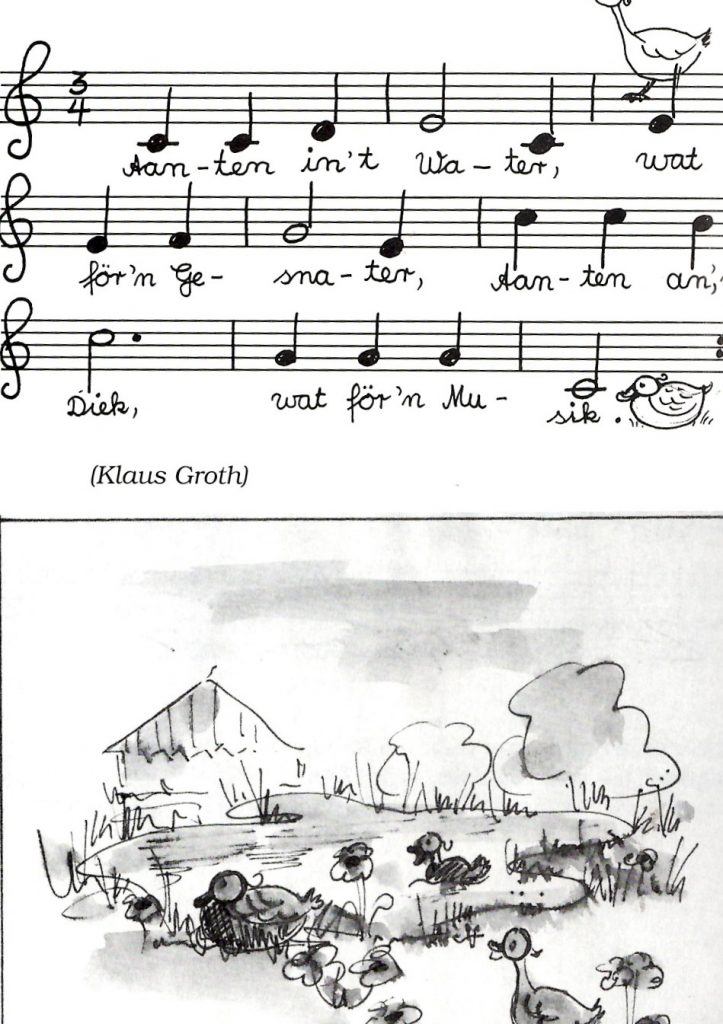 3
4
Aan-ten in't Wa-ter, wat
för'n Ge-sna-ter, Aan-ten an',
Diek, wat för'n Mu-sik.
(Klaus Groth)